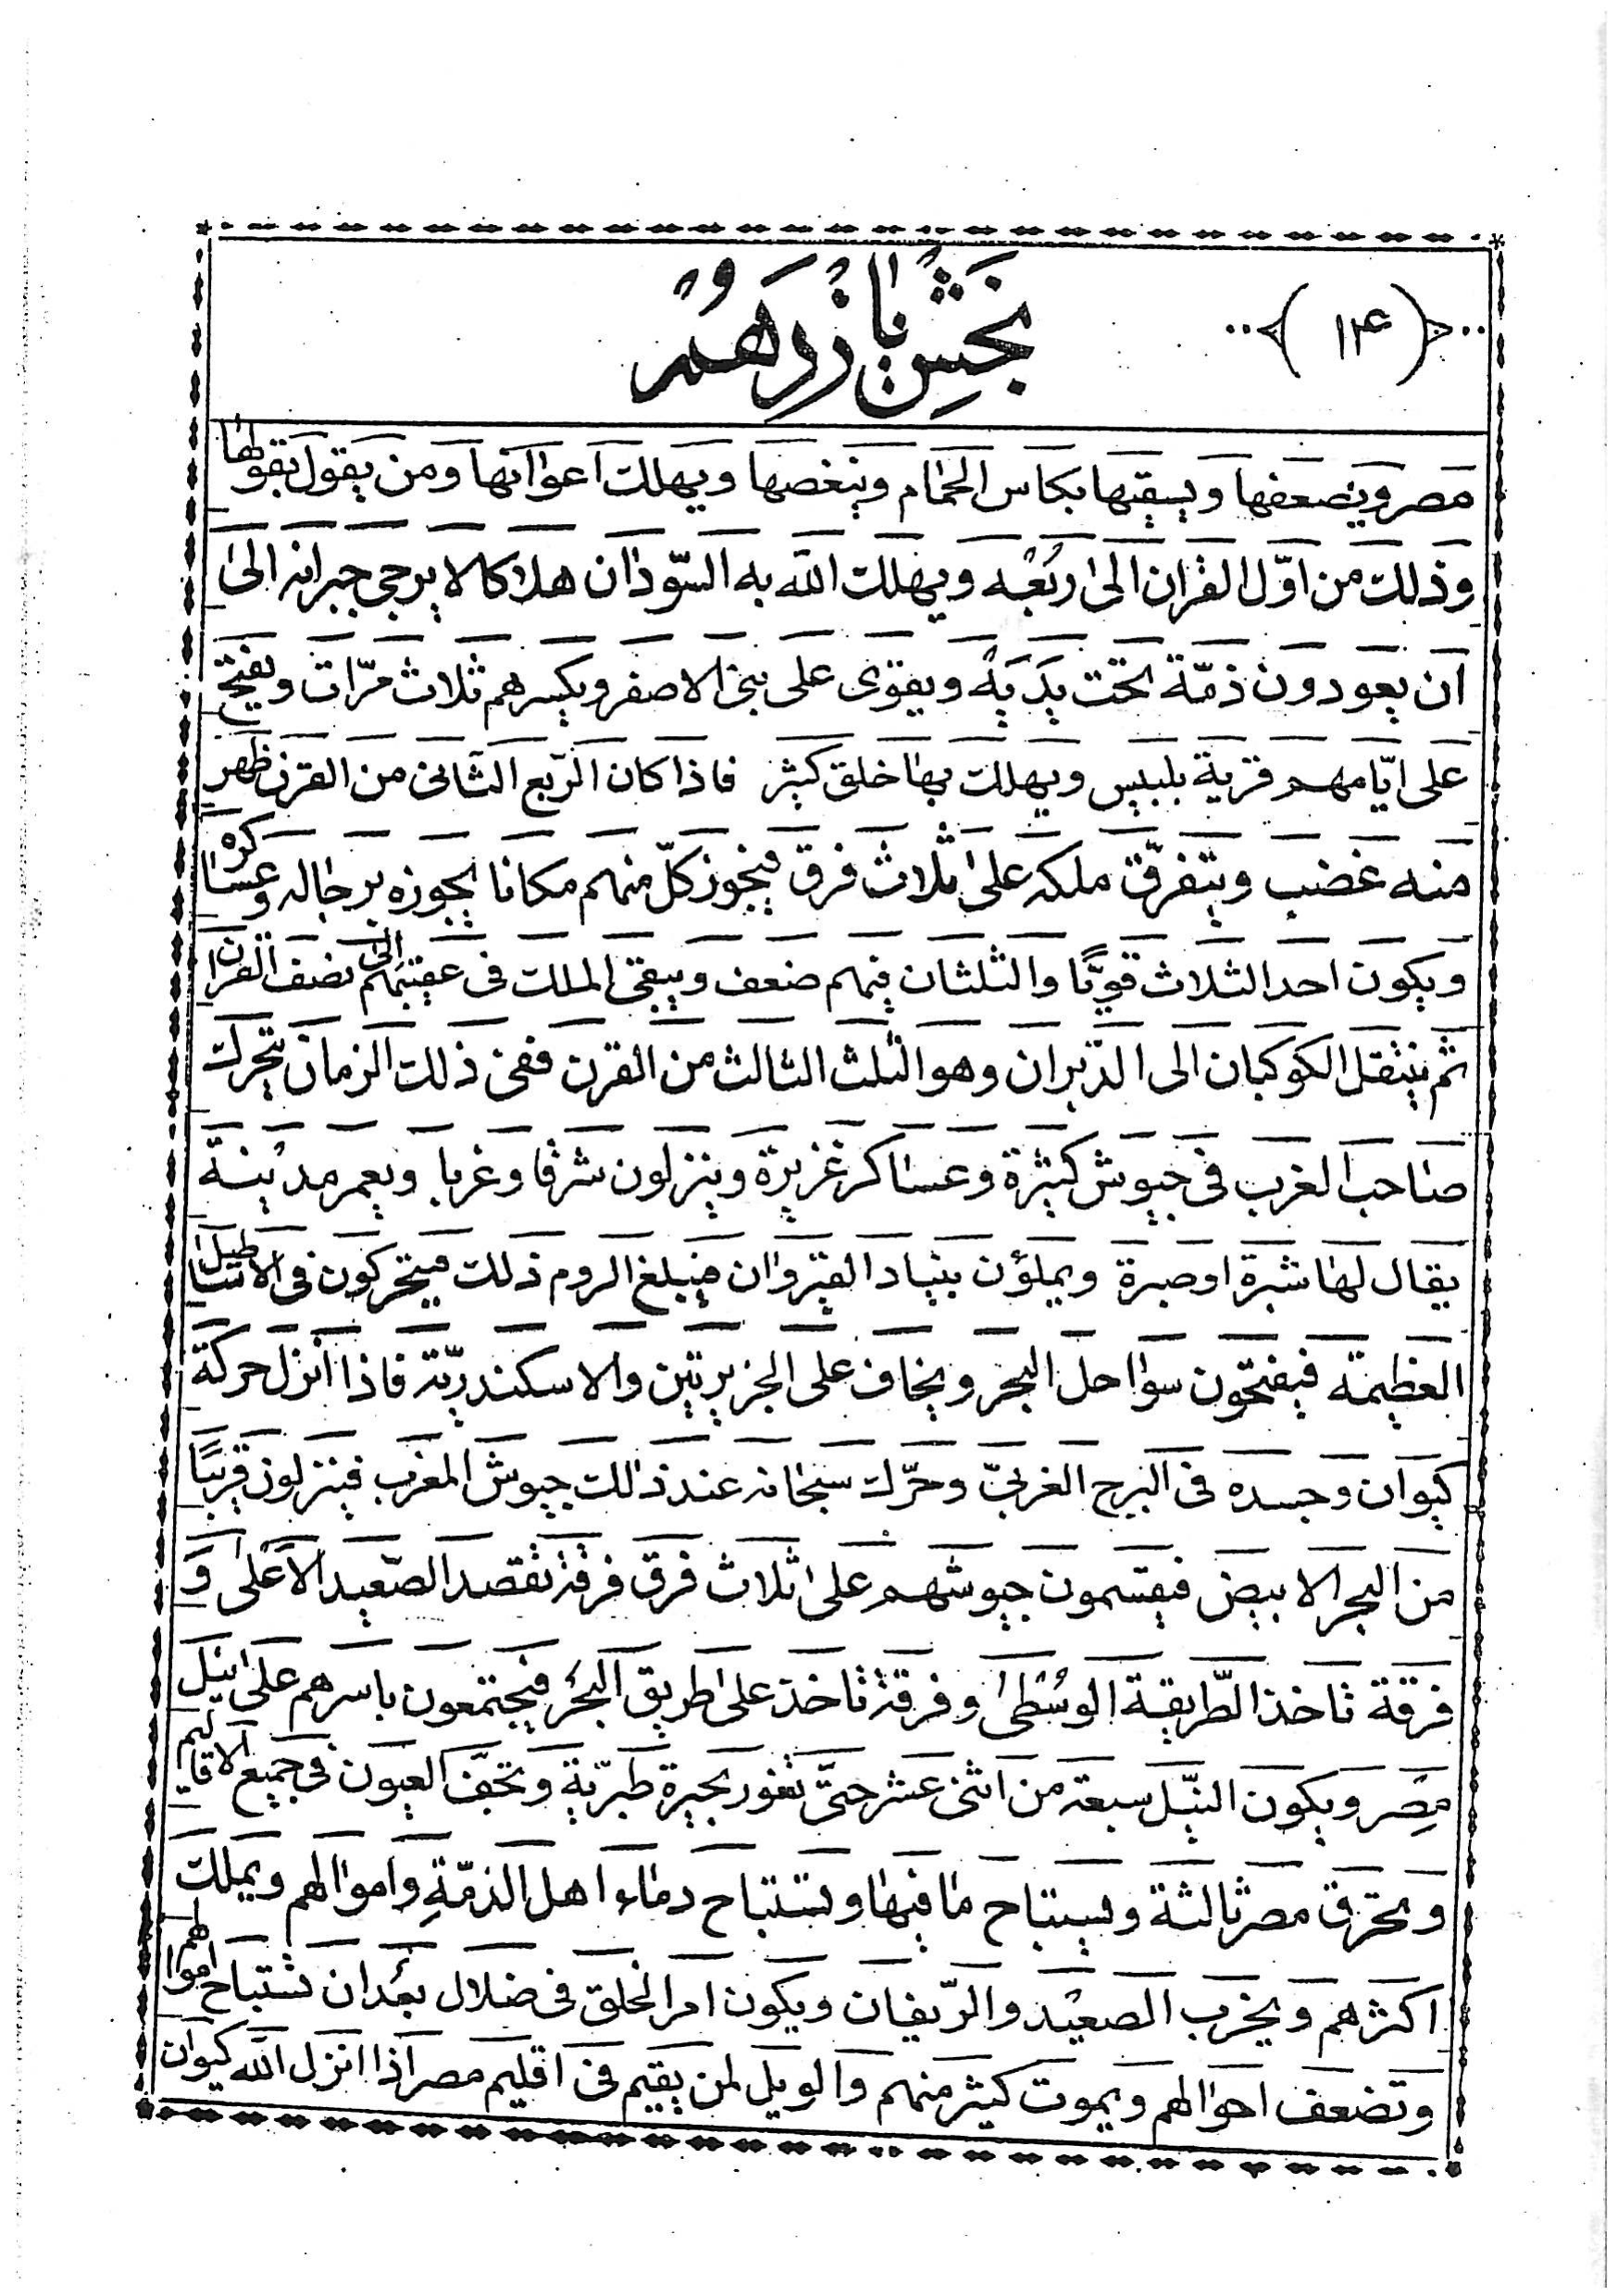 (۱۴)
بخش یازدهم
مصر ويضعفها ويسقيها بكاس الحمام وينغصها ويهلك اعوانها ومن يقول بقولها
وذلك من اوّل القران الى ربعه ويهلك الله به السّودان هلاكا لا يرجى جبرانه الى
ان يعودون ذمّة تحت يديه ويقوى على بنى الاصفر ويكسرهم ثلاث مرّات ويفتح
على ايّامهم قرية بلبيس ويهلك بها خلق كثير فاذا كان الرّبع الثّانى من القرن ظهر
منه غضب ويتفرّق ملكه على ثلاث فرق فيجوز كلّ منهم مكانا يجوزه برجاله وعساكره
ويكون احد الثلاث قويّا والثلثان فيهم ضعف ويبقى الملك فى عقبتهم الى نصف القرن
ثم ينتقل الكوكبان الى الدّبران وهو الثلث الثالث من القرن ففى ذلك الزمان يتحرك
صاحب الغرب فى جيوش كثيرة وعساكر غزيرة وينزلون شرقا وغربا ويعمر مدينة
يقال لها شبرة او صبرة ويملؤن بنياد القيروان فيبلغ الروم ذلك فيتحركون فى الاساطيل
العظيمة فيفتحون سواحل البحر ويخاف على الجزيرتين والاسكندريّة فاذا انزل حركة
كيوان وجسده فى البرج الغربىّ وحرّك سبحانه عند ذالك جيوش المغرب فينزلون قريبًا
من البحر الابيض فيقسمون جيوشهم على ثلاث فرق فرقة تقصد الصّعيد الاعلى و
فرقة تاخذ الطّريقة الوسطى وفرقة تاخذ على طريق البحر فيجتمعون باسرهم على نيل
مصر ويكون النّيل سبعة من اثنى عشر حتّى تغور بحيرة طبريّة وتجفّ العيون فى جميع الاقاليم
ويحرق مصر ثالثة ويستباح ما فيها وتستباح دماء اهل الذمّة واموالهم ويملك
اكثرهم ويخرب الصعيد والرّيفان ويكون امر الخلق فى ضلال بعد ان تستباح اموالهم
وتضعف احوالهم ويموت كثير منهم والويل لمن يقيم فى اقليم مصر اذا انزل الله كيوان